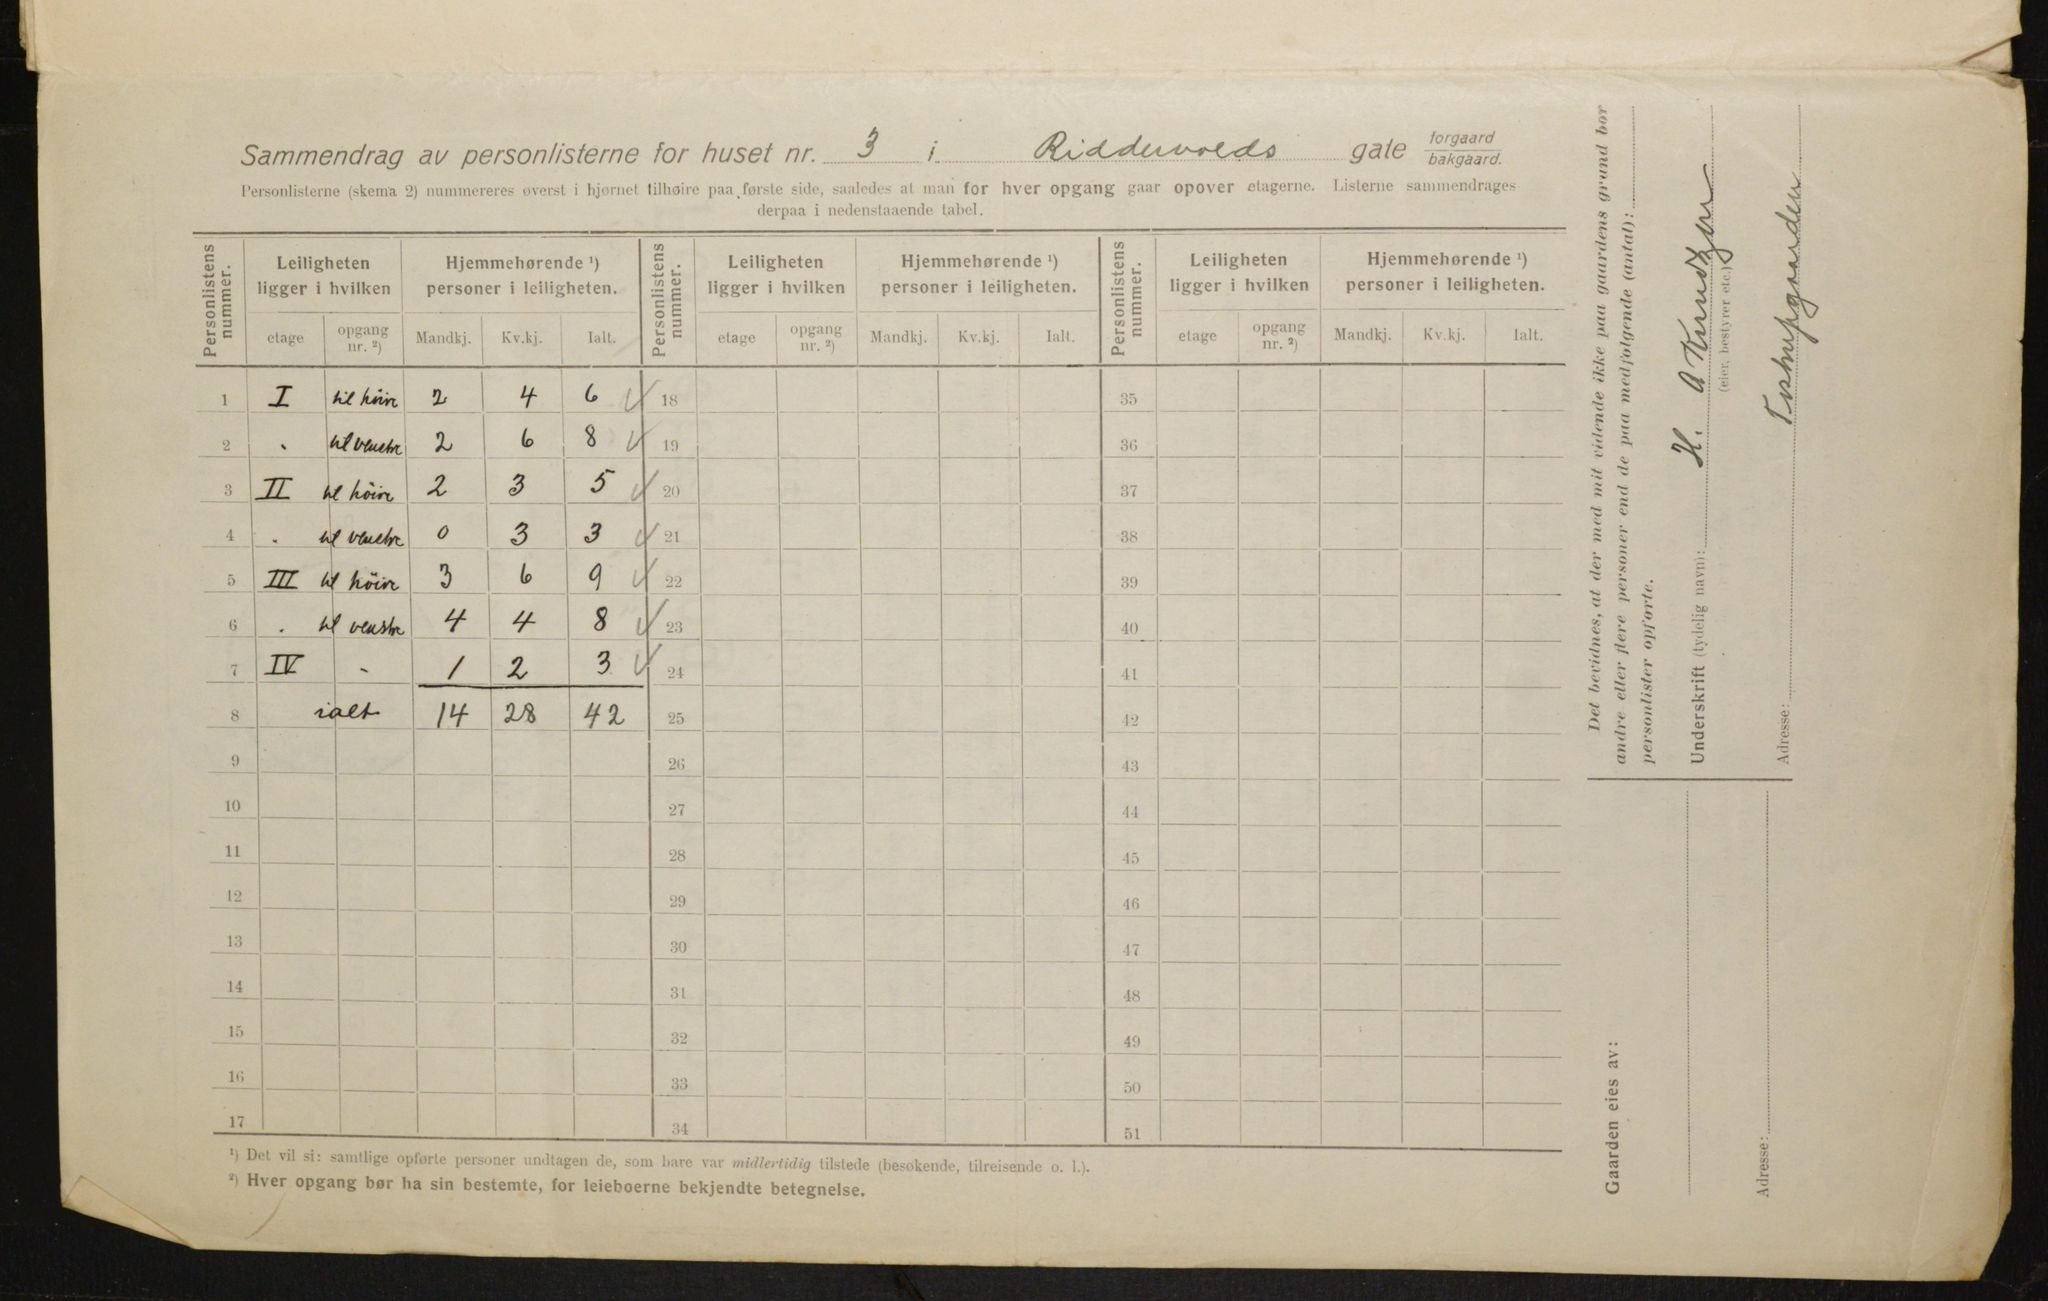 Sammendrag av personlisterne for huset nr. 3 i Riddervolds gate forgaard bakgaard.
Personlisterne (skema 2) nummereres øverst i hjørnet tilhøire paa første side, saaledes at man for hver opgang gaar opover etagerne. Listerne sammendrages
derpaa i nedenstaaende tabel.
Personlistens nummer. Leiligheten ligger i hvilken Hjemmehørende ¹) personer i leiligheten. Personlistens nummer. Leiligheten ligger i hvilken Hjemmehørende ¹) personer i leiligheten. Personlistens nummer. Leiligheten ligger i hvilken Hjemmehørende ¹) personer i leiligheten.
etage opgang nr. ²) Mandkj. Kv.kj. Ialt. etage opgang nr. ²) Mandkj. Kv.kj. Ialt. etage opgang nr. ²) Mandkj. Kv.kj. Ialt.
1 I til höire 2 4 6 18 35
2 " til venstre 2 6 8 19 36
3 II til höire 2 3 5 20 37
4 " til venstre 0 3 3 21 38
5 III til höire 3 6 9 22 39
6 " til venstre 4 4 8 23 40
7 IV - 1 2 3 24 41
8 ialt 14 28 42 25 42
9 26 43
10 27 44
11 28 45
12 29 46
13 30 47
14 31 48
15 32 49
16 33 50
17 34 51
¹) Det vil si: samtlige opførte personer undtagen de, som bare var midlertidig tilstede (besøkende, tilreisende o. l.).
²) Hver opgang bør ha sin bestemte, for leieboerne bekjendte betegnelse.
Det bevidnes, at der med mit vidende ikke paa gaardens grund bor
andre eller flere personer end de paa medfølgende (antal):
personlister opførte.
Underskrift (tydelig navn): H. A Knudzen
(eier, bestyrer etc.)
Adresse: Tostrupgaarden
Gaarden eies av:
Adresse: